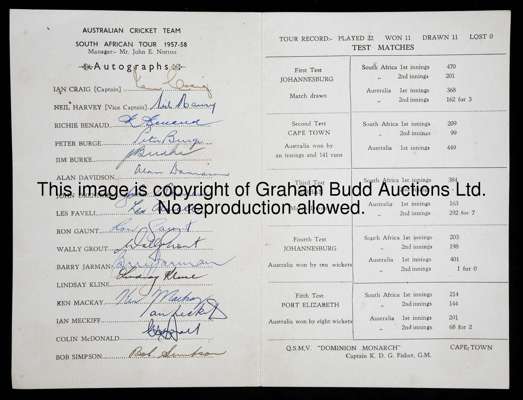 AUSTRALIAN CRICKET TEAM
SOUTH AFRICAN TOUR 1957-58
Manager:- Mr. John E. Norton
Autographs
IAN CRAIG [Captain] Ian Craig
NEIL HARVEY [Vice Captain] Neil Harvey
RICHIE BENAUD R Benaud
PETER BURGE Peter Burge
JIM BURKE J Burke
ALAN DAVIDSON Alan Davidson
JOHN
LES FAVELL Les Favell
RON GAUNT Ron Gaunt
WALLY GROUT Wally Grout
BARRY JARMAN Barry Jarman
LINDSAY KLINE Lindsay Kline
KEN MACKAY Ken Mackay
IAN MECKIFF Ian Meckiff
COLIN McDONALD
BOB SIMPSON Bob Simpson
TOUR RECORD:- PLAYED 22 WON 11 DRAWN 11 LOST 0
TEST MATCHES
First Test South Africa 1st innings 470
JOHANNESBURG „ 2nd innings 201
Match drawn Australia 1st innings 368
„ 2nd innings 162 for 3
Second Test South Africa 1st innings 209
CAPE TOWN „ 2nd innings 99
Australia won by Australia 1st innings 449
an innings and 141 runs
Third Test South Africa 1st innings 384
163
2nd innings 292 for 7
Fourth Test South Africa 1st innings 203
JOHANNESBURG „ 2nd innings 198
Australia won by ten wickets Australia 1st innings 401
„ 2nd innings 1 for 0
Fifth Test South Africa 1st innings 214
PORT ELIZABETH „ 2nd innings 144
Australia won by eight wickets Australia 1st innings 291
„ 2nd innings 68 for 2
Q.S.M.V. "DOMINION MONARCH" CAPE-TOWN
Captain K. D. G. Fisher, G.M.
This image is copyright of Graham Budd Auctions Ltd.
No reproduction allowed.